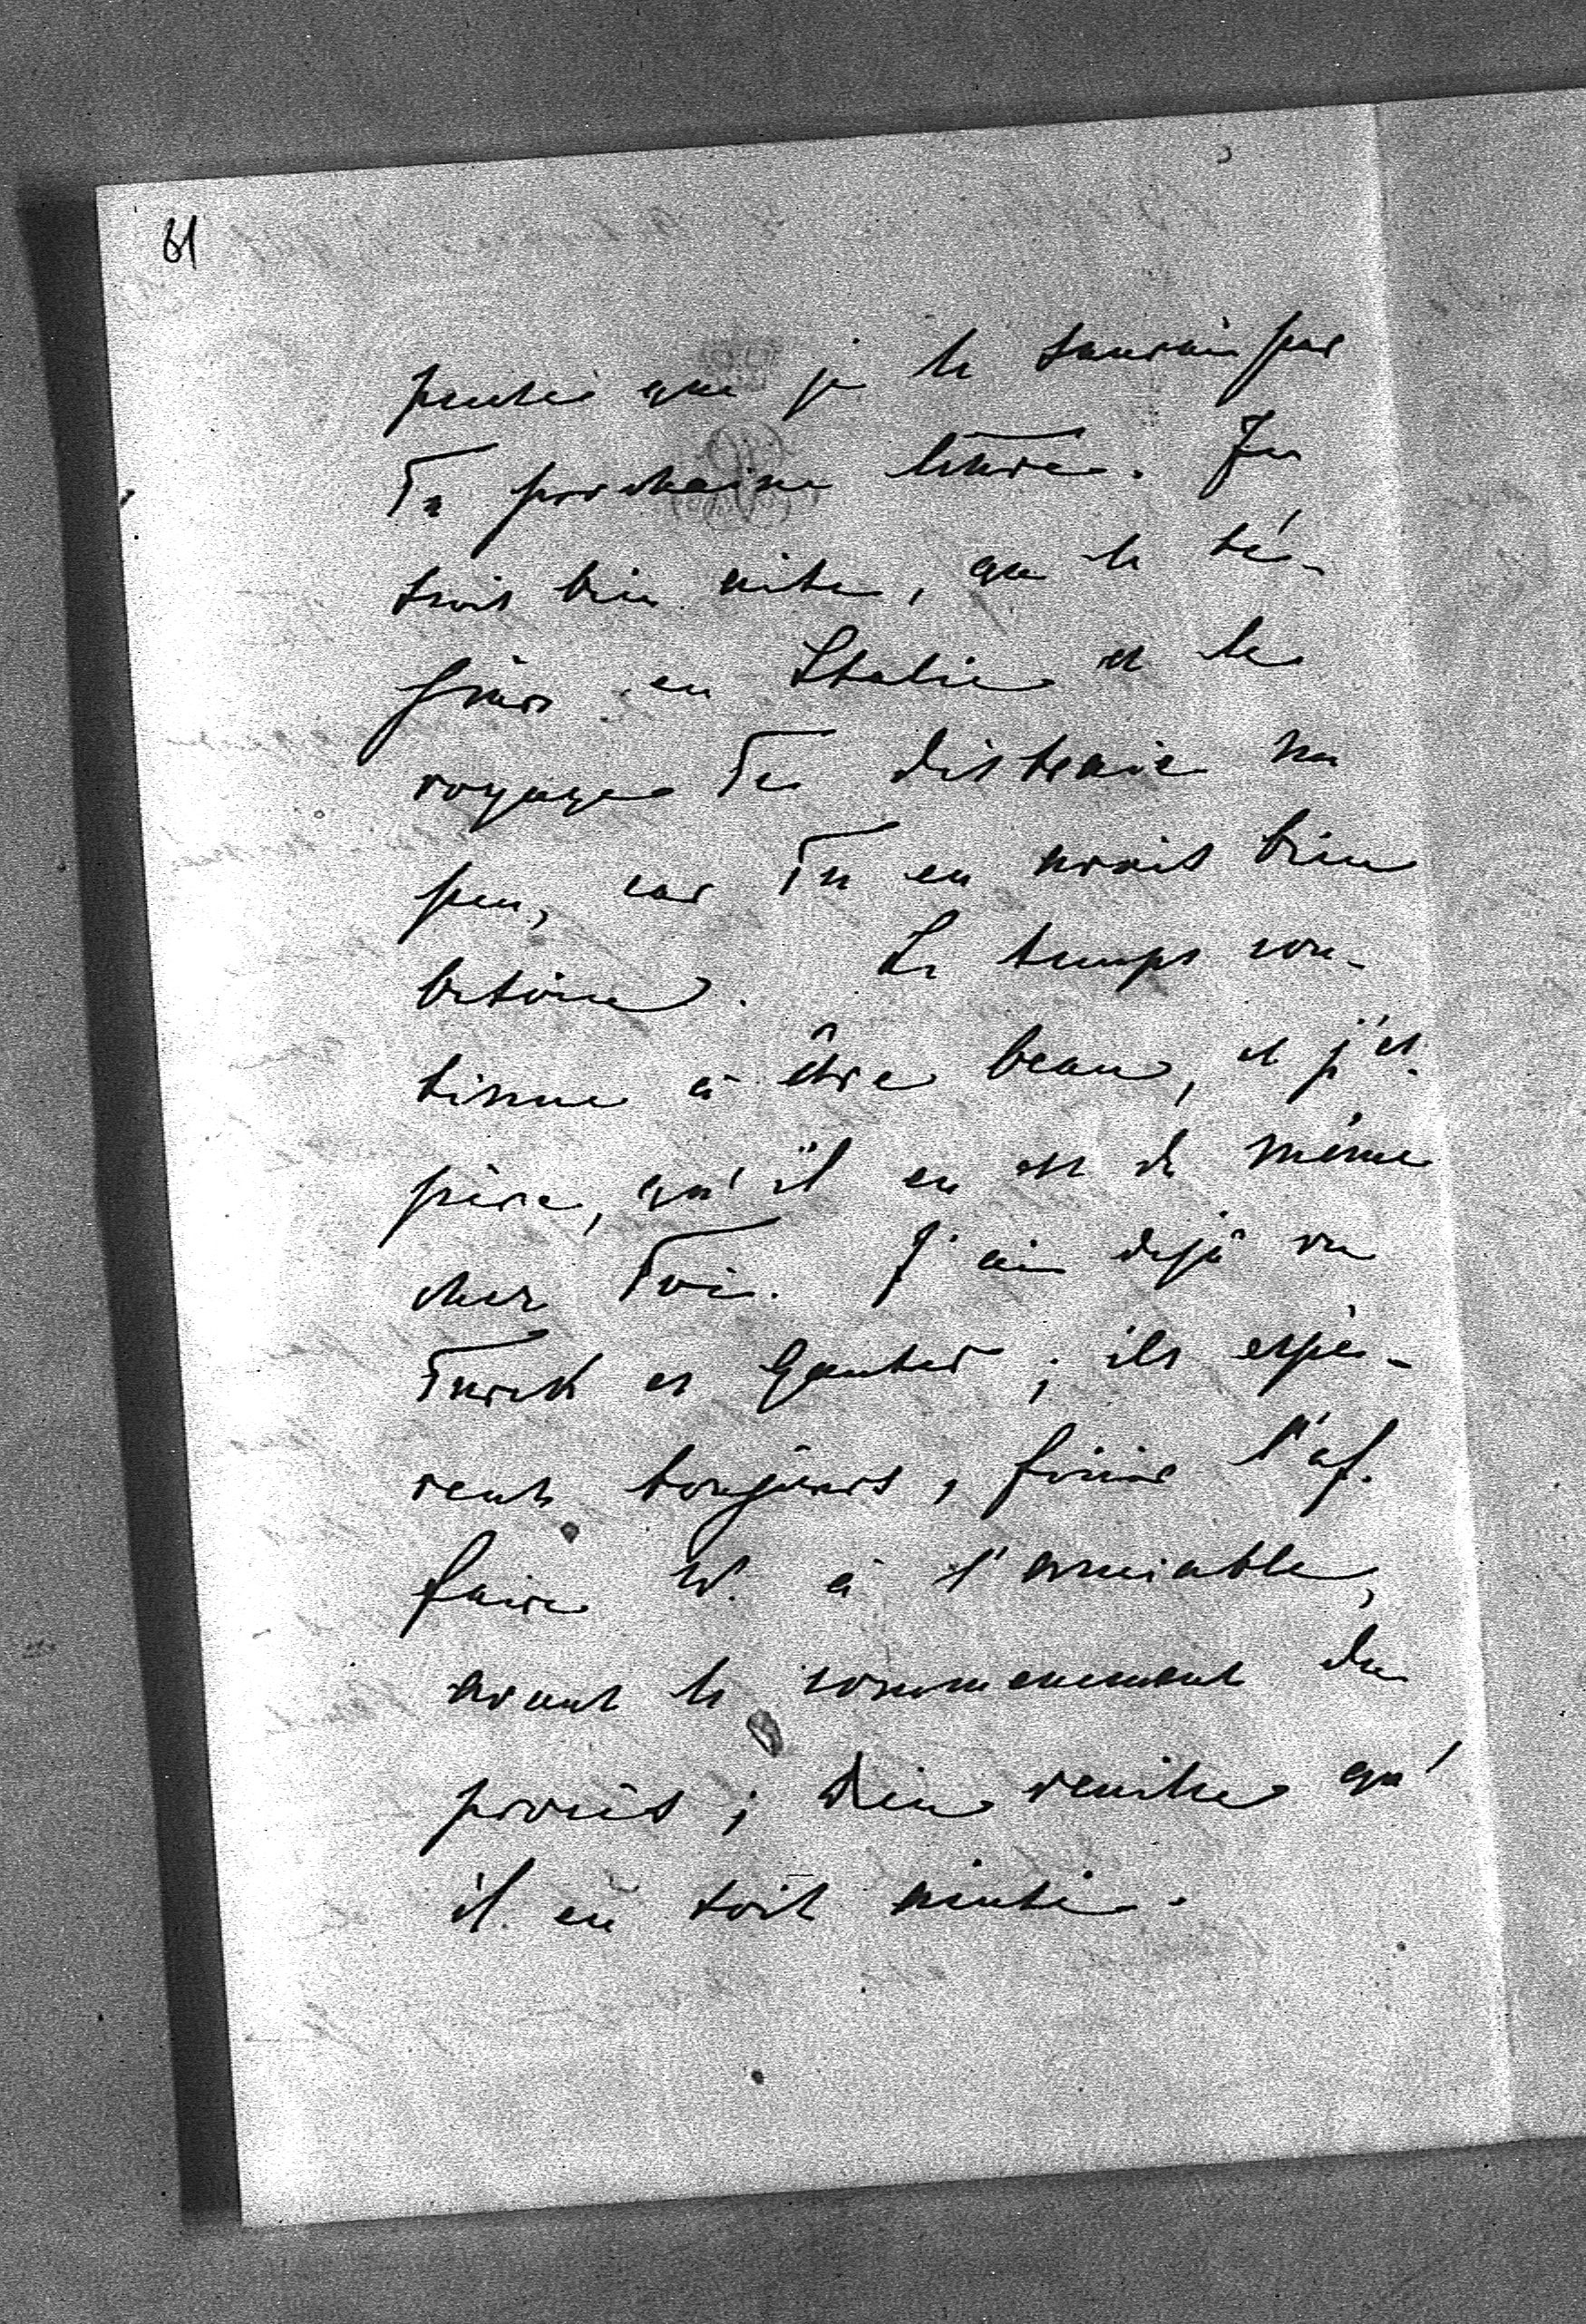 61
que je le saurai par
Ta prochaine lettre. Je
crois bien vite, que le sé-
jour en Italie et le
voyage Te distraie un
peu, car Tu en avais bien
besoin. Le temps con-
tinue à être beau, et j'es-
père, qu'il en est de même
chez Toi. J'ai dejà vu
Türck et Gautsch; ils espè-
rent toujours, finir l'af-
faire W. à l'amiable,
avant le commencement du
procès; Dieu veuille qu'
il en soit ainsi.